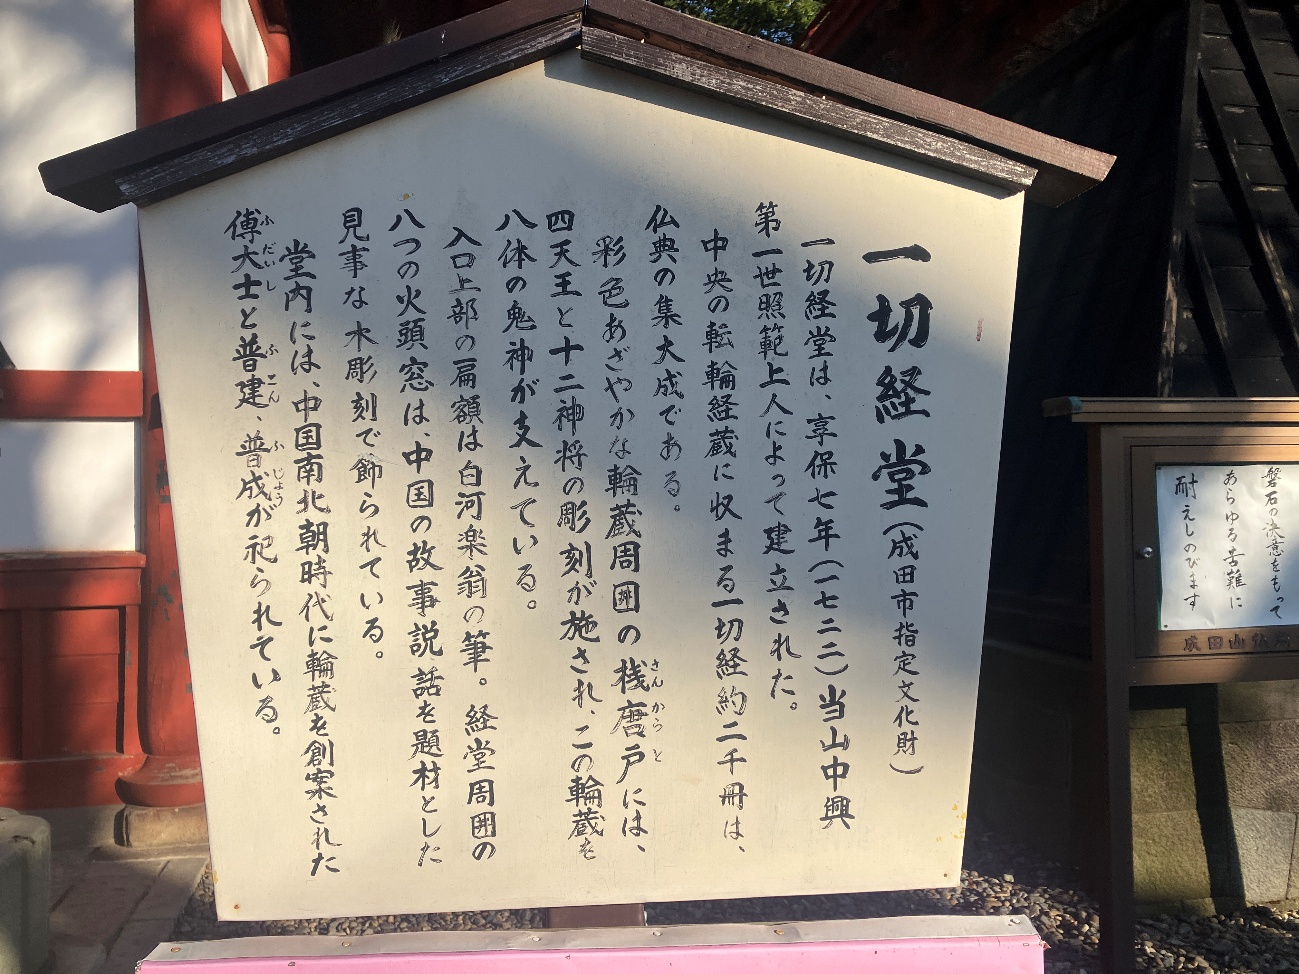 一切経堂(成田市指定文化財)
一切経堂は、享保七年(一七二二)当山中興
第一世照範上人によって建立された。
中央の転輪経蔵に収まる一切経約二千冊は、
仏典の集大成である。
彩色あざやかな輪蔵周囲の桟唐戸には、
さんからと
四天王と十二神将の彫刻が施され、この輪蔵を
八体の鬼神が支えている。
入口上部の扁額は白河楽翁の筆。経堂周囲の
八つの火頭窓は、中国の故事説話を題材とした
見事な木彫刻で飾られている。
堂内には、中国南北朝時代に輪蔵を創案された
傅大士と普建、普成が祀られている。
ふだいし ふこん ふじょう
盤石の決意をもって
あらゆる苦難に
耐えしのびます
成田山